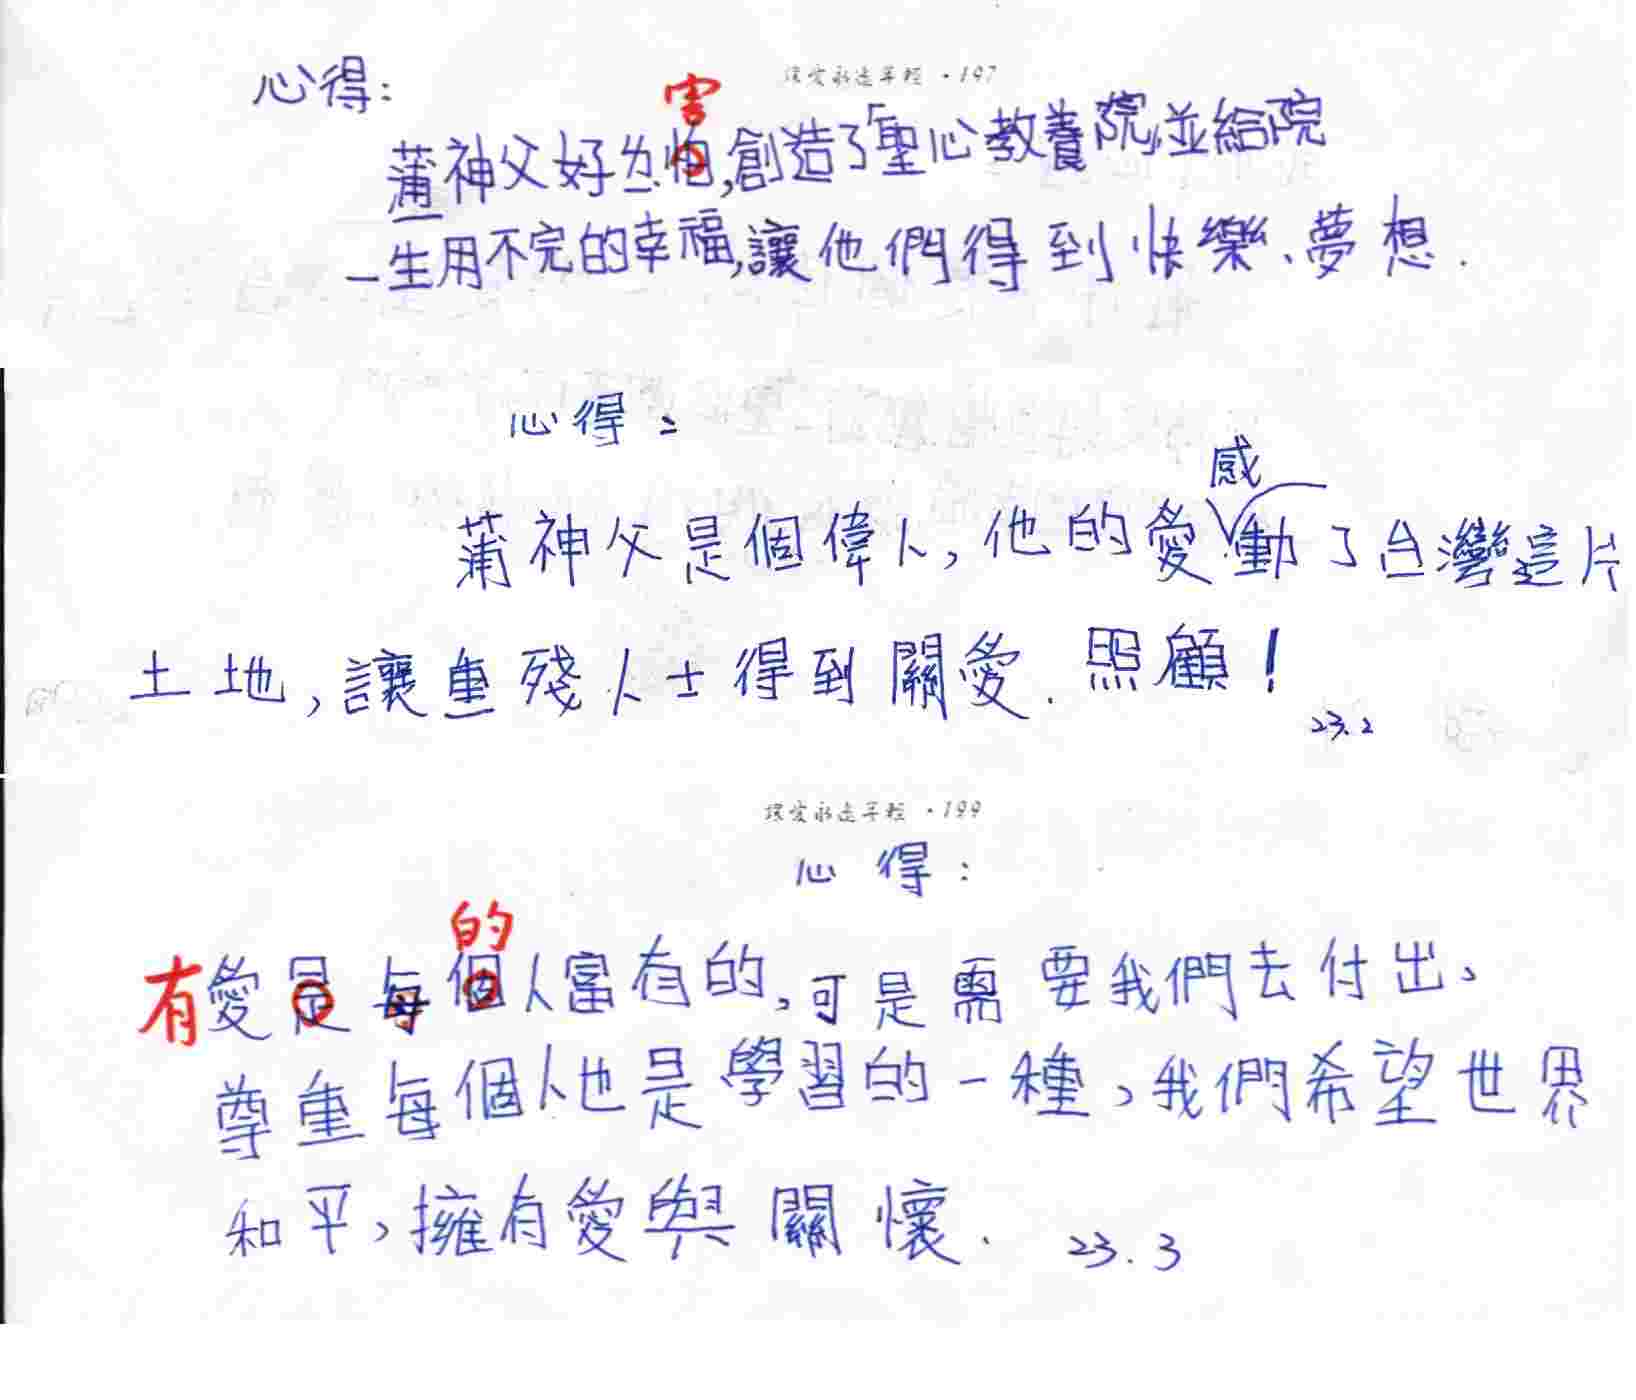 讓愛永遠年輕 · 197
心得:
害
蒲神父好ㄌ怕,創造了「聖心教養院,並給院
一生用不完的幸福,讓他們得到快樂、夢想.
心得:
感
蒲神父是個偉人,他的愛動了台灣這片
土地,讓重殘人士得到關愛.照顧!
23.2
讓愛永遠年輕 · 199
心得:
的
有愛是每個人富有的,可是需要我們去付出、
尊重每個人也是學習的一種,我們希望世界
和平,擁有愛與關懷.
23.3